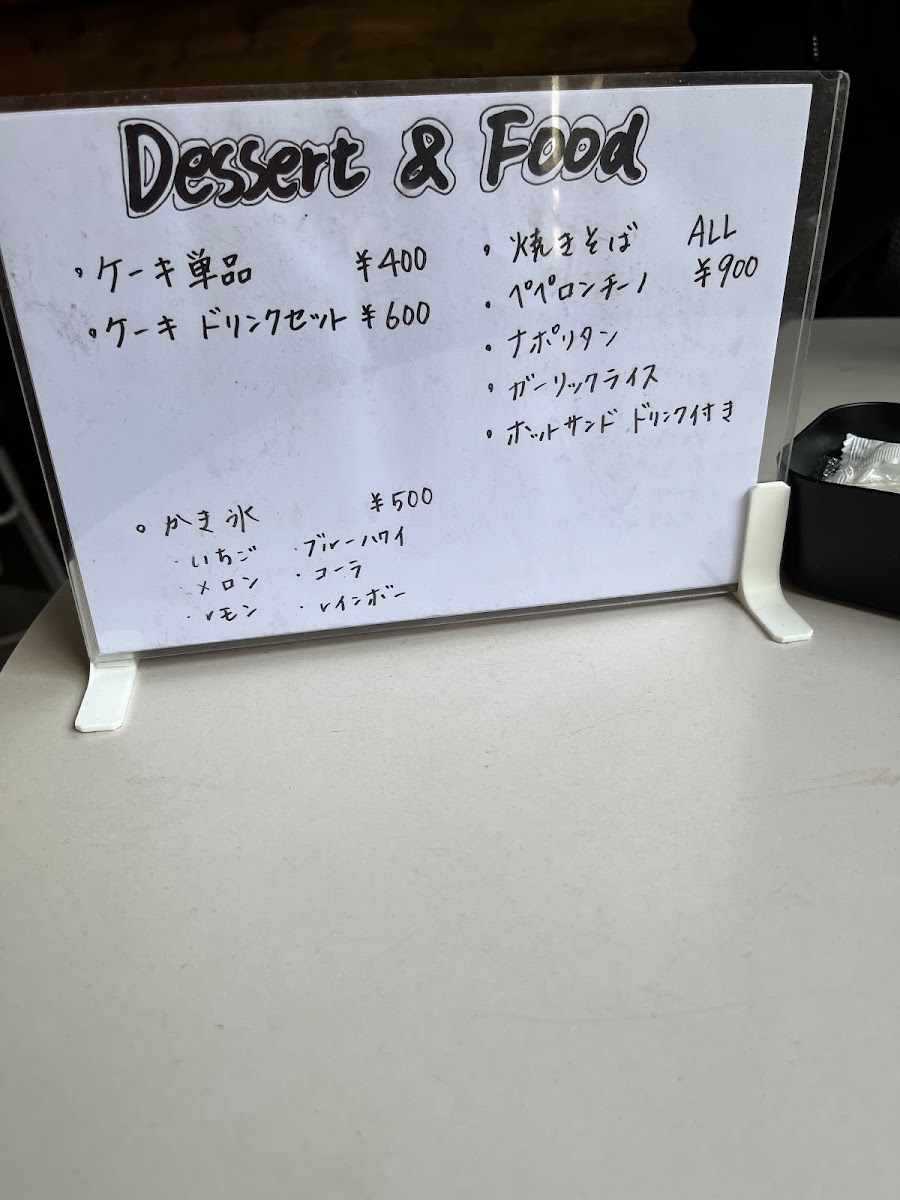 Dessert & Food
・ケーキ単品 ¥400
・ケーキ ドリンクセット ¥600
・かき氷 ¥500
・いちご ・ブルーハワイ
・メロン ・コーラ
・レモン ・レインボー
・焼きそば ALL
・ペペロンチーノ ¥900
・ナポリタン
・ガーリックライス
・ホットサンド ドリンク付き